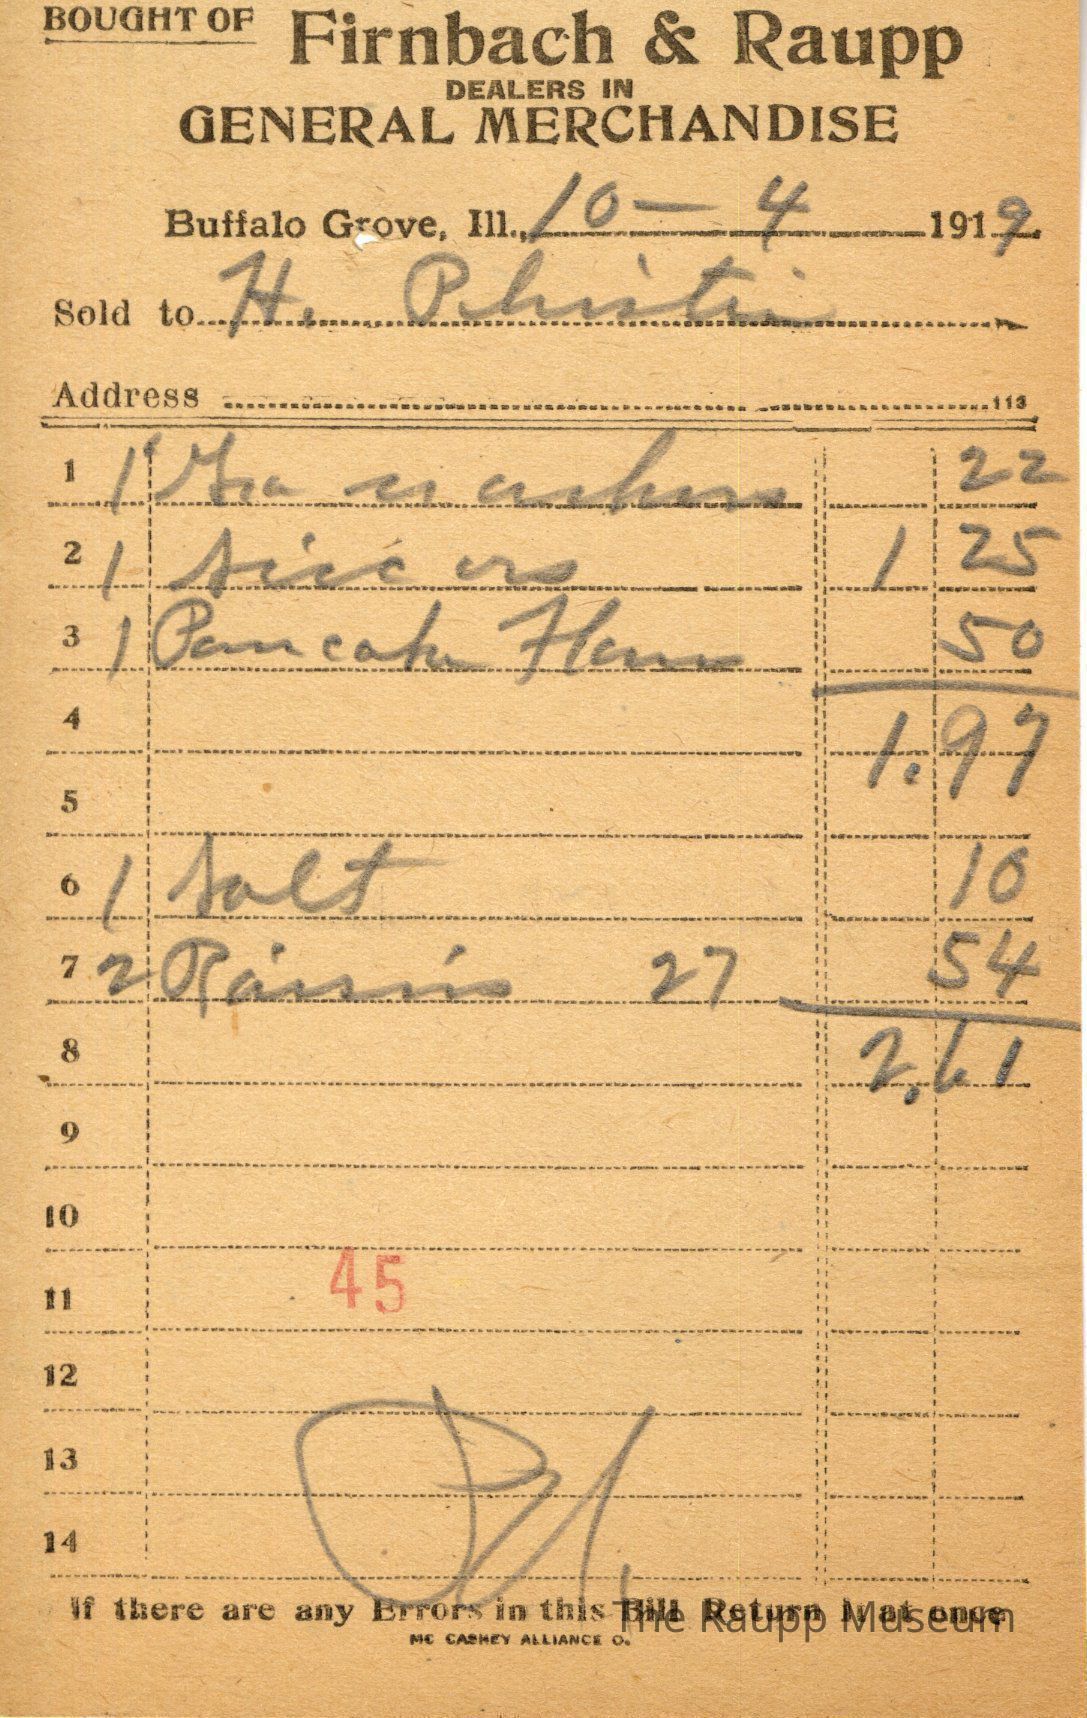 BOUGHT OF Firnbach & Raupp
DEALERS IN
GENERAL MERCHANDISE
Buffalo Grove, Ill., 10 — 4 1919.
Sold to H.
Address 113
1 1 crackers 22
2 1 1 25
3 1 Pancake Flour 50
4 1.97
5
6 1 Salt 10
7 2 Raisins 27 54
8 2.61
9
10
11 45
12
13
14
If there are any Errors in this Bill Return it at once
MC CASKEY ALLIANCE O.
The Raupp Museum